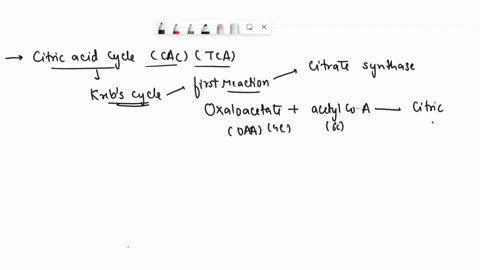 → Citric acid cycle (CAC) (TCA)
Kreb's cycle
first reaction
Citrate synthase
Oxaloacetate + acetyl Co-A — Citric
(OAA) (4C)
(2C)